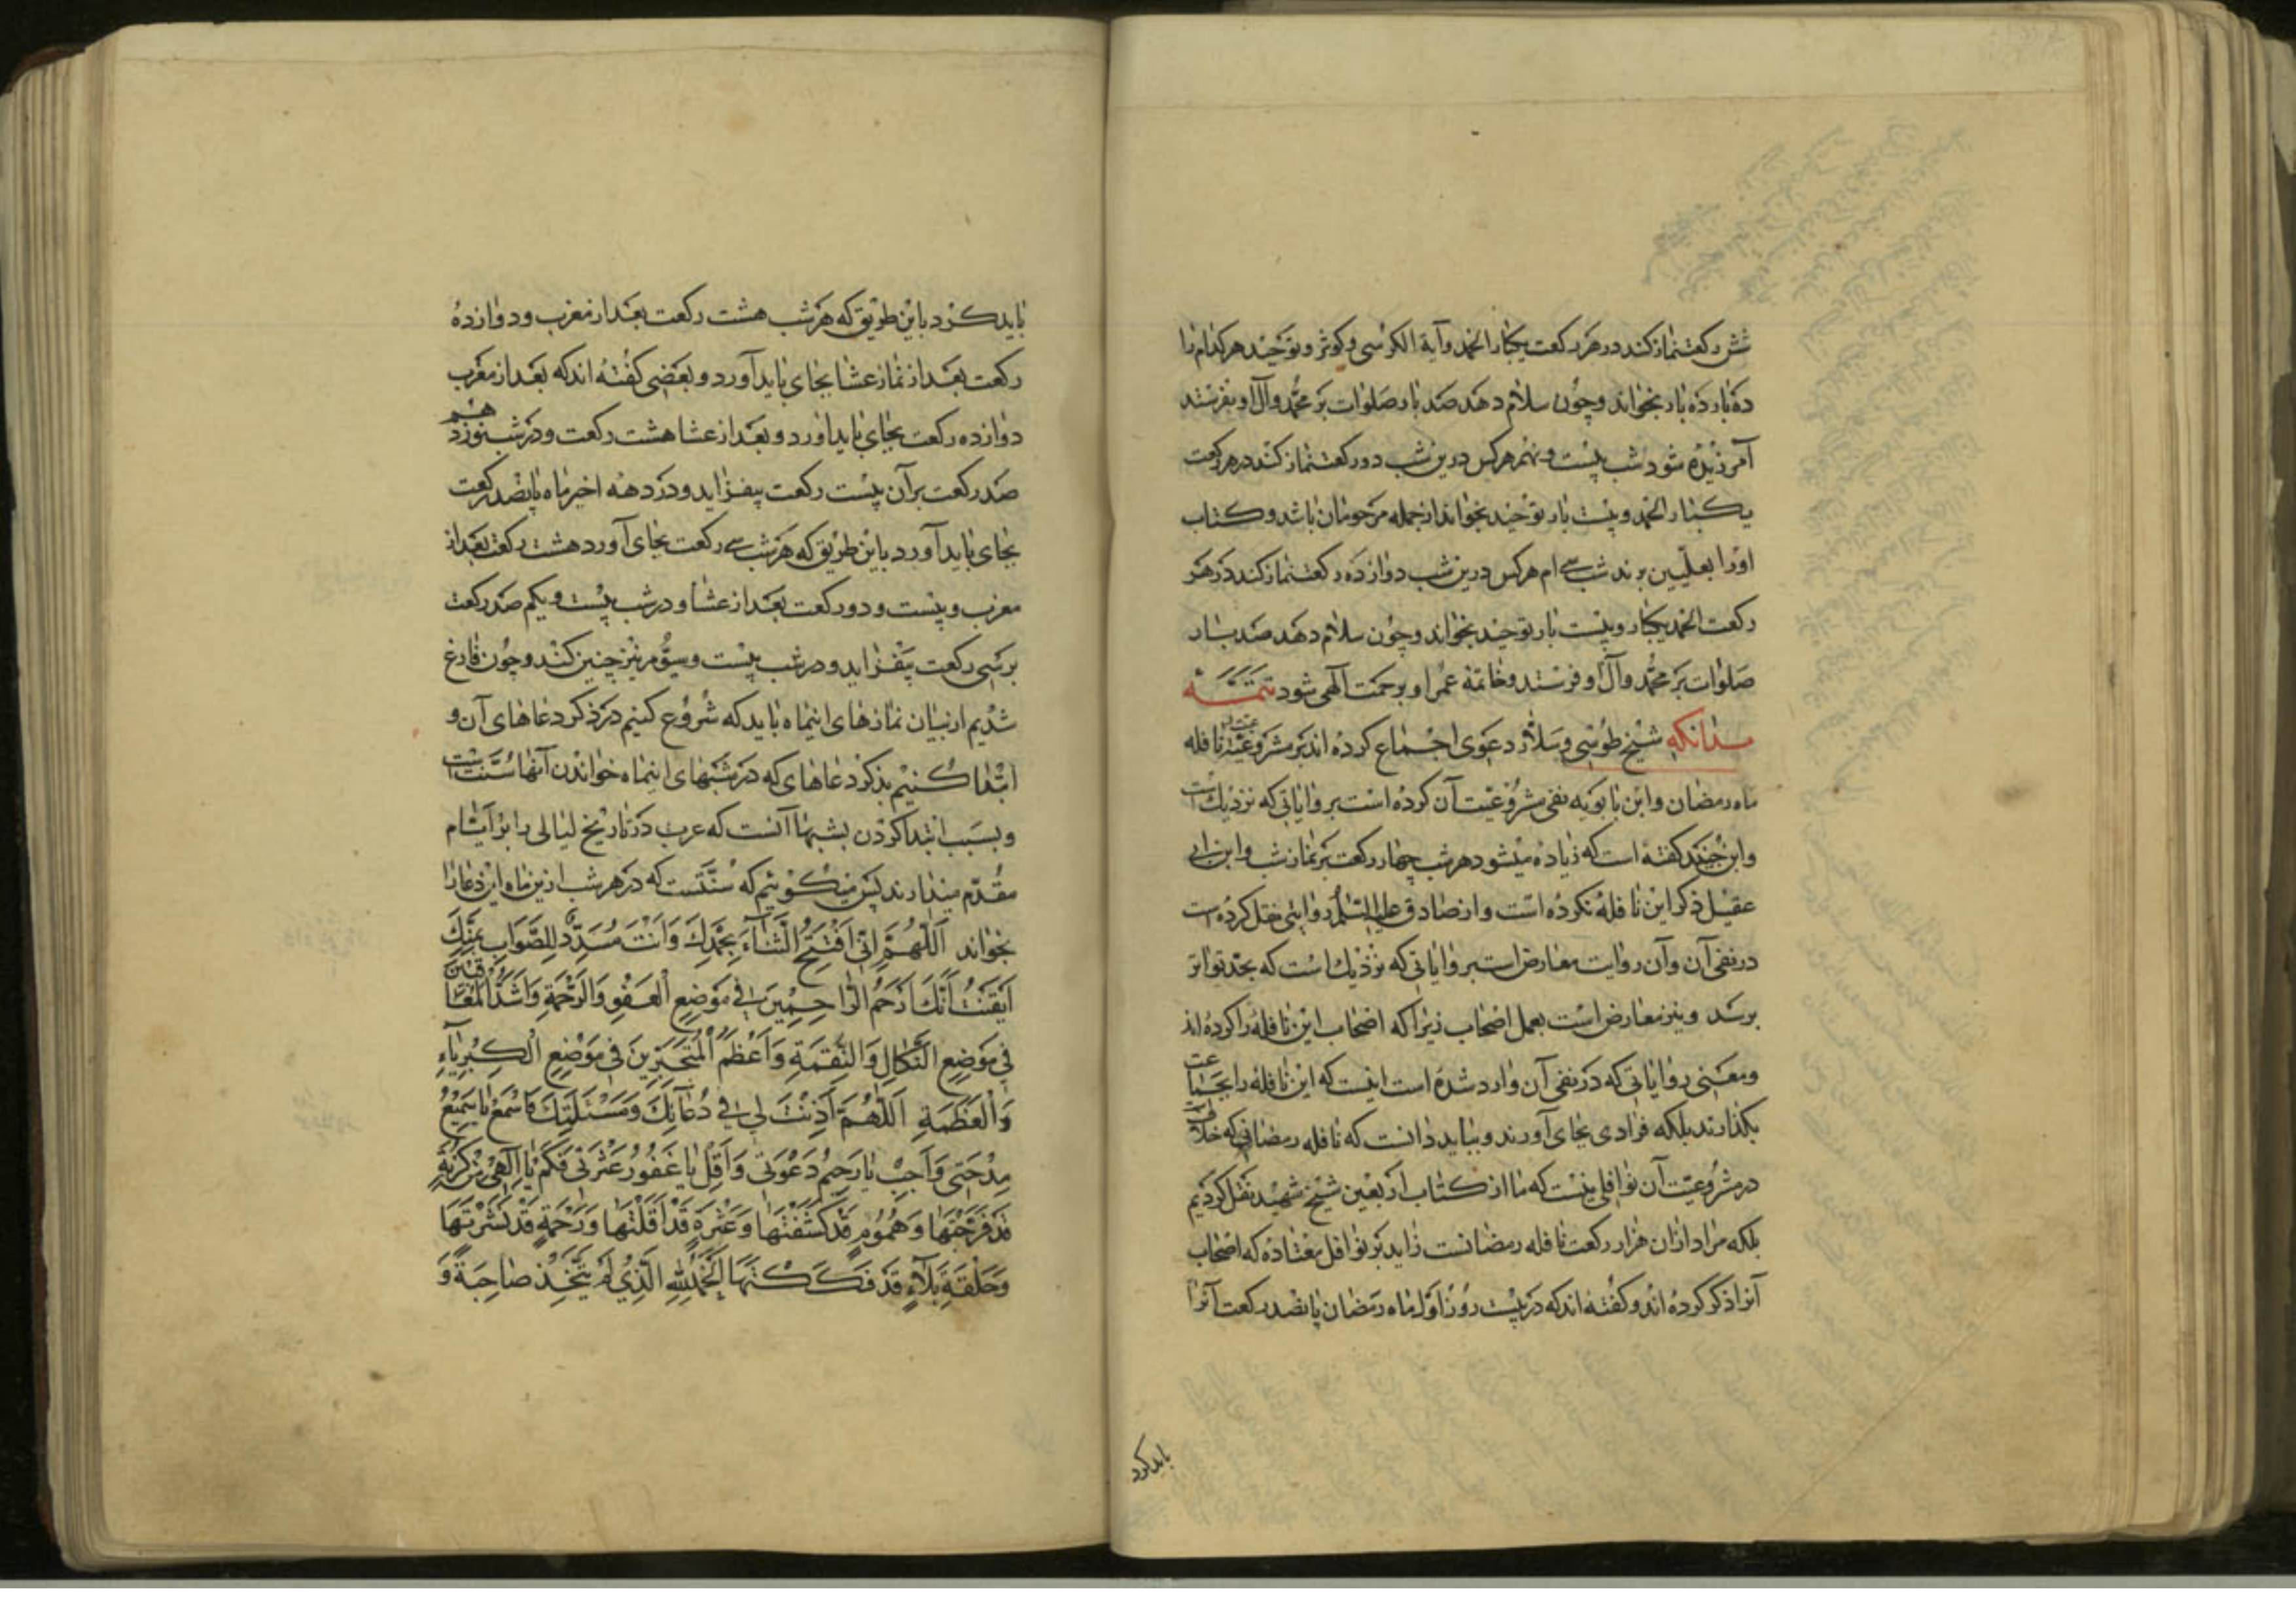 شش رکعت نماز کند در هر رکعت یکبار الحمد و آیة الکرسی و کوثر و توحید هر کدام را
ده بار ده بار بخواند و چون سلام دهد صد بار صلوات بر محمد و آل او بفرستد
آمرزیده شود شب بیست و نهم هر کس درین شب دو رکعت نماز کند در هر رکعت
یکبار الحمد و بیست بار توحید بخواند از جمله مرحومان باشد و کتاب
او را بعلیین برند شب سی ام هر کس درین شب دوازده رکعت نماز کند در هر
رکعت الحمد یکبار و بیست بار توحید بخواند و چون سلام دهد صد بار
صلوات بر محمد و آل او فرستد و خاتمهٔ عمر او برحمت آلهی شود تتمّــه
بدانکه شیخ طوسی و سلار دعوی اجماع کرده اند بر مشروعیّت نافله
ماه رمضان و ابن بابویه نفی مشروعیّت آن کرده است بروایاتی که نزدیک است
و ابن جنید کفته است که زیاده میشود هر شب چهار رکعت بر نماز شب و ابن ابی
عقیل ذکر این نافله نکرده است و از صادق علیه السّلم روایتی نقل کرده است
در نفی آن و آن روایت معارض است بروایاتی که نزدیک است که بحدّ تواتر
برسد و نیز معارض است بعمل اصحاب زیرا که اصحاب این نافله را کرده اند
و معنی روایاتی که در نفی آن وارد شده است اینست که این نافله را بجماعت
بکذارند بلکه فرادی بجای آورند و بباید دانست که نافله رمضانی که خلافست
در مشروعیّت آن نوافلی نیست که ما از کتاب اربعین شیخ شهید نقل کردیم
بلکه مراد از ان هزار رکعت نافله رمضانست زاید بر نوافل معتاده که اصحاب
آنرا ذکر کرده اند و کفته اند که در بیست روز اوّل ماه رمضان پانصد رکعت آنرا
باید کرد
باید کرد باین طریق که هر شب هشت رکعت بعد از مغرب و دوازده
رکعت بعد از نماز عشا بجای باید آورد و بعضی کفته اند که بعد از مغرب
دوازده رکعت بجای باید اورد و بعد از عشا هشت رکعت و در شب نوزدهم
صد رکعت بر آن بیست رکعت بیفزاید و در دهه اخیر ماه پانصد رکعت
بجای باید آورد باین طریق که هر شب سی رکعت بجای آورد هشت رکعت بعد از
مغرب و بیست و دو رکعت بعد از عشا و در شب بیست و یکم صد رکعت
بر سی رکعت بیفزاید و در شب بیست و سیّوم نیز چنین کند و چون فارغ
شدیم از بیان نمازهای اینماه باید که شروع کنیم در ذکر دعاهای آن و
ابتدا کنیم بذکر دعاهای که در شبهای اینماه خواندن آنها سنّت است
و بسبب ابتدا کردن بشبها آنست که عرب در تاریخ لیالی را بر ایّام
مقدّم میدارند پس میکوییم که سنّتست که در هر شب ازین ماه این دعا را
بخواند اَللّٰهُمَّ اِنّی اَفْتَتِحُ الثَّناءَ بِحَمْدِكَ وَاَنْتَ مُسَدِّدٌ لِلصَّوابِ بِمَنِّكَ
اَیْقَنْتُ اَنَّكَ اَرْحَمُ الرّاحِمِینَ فی مَوْضِعِ الْعَفْوِ وَالرَّحْمَةِ وَاَشَدُّ الْمُعاقِبِینَ
فی مَوْضِعِ النَّکالِ وَالنَّقِمَةِ وَاَعْظَمُ الْمُتَجَبِّرِینَ فی مَوْضِعِ الْکِبْرِیاءِ
وَالْعَظَمَةِ اَللّٰهُمَّ اَذِنْتَ لی فی دُعائِكَ وَمَسْئَلَتِكَ فَاسْمَعْ یا سَمِیعُ
مِدْحَتی وَاَجِبْ یا رَحِیمُ دَعْوَتی وَاَقِلْ یا غَفُورُ عَثْرَتی فَکَمْ یا اِلٰهی مِنْ کُرْبَةٍ
قَدْ فَرَّجْتَها وَهُمُومٍ قَدْ کَشَفْتَها وَعَثْرَةٍ قَدْ اَقَلْتَها وَرَحْمَةٍ قَدْ نَشَرْتَها
وَحَلْقَةِ بَلاءٍ قَدْ فَکَکْتَها اَلْحَمْدُ لِلّٰهِ الَّذی لَمْ یَتَّخِذْ صاحِبَةً وَ